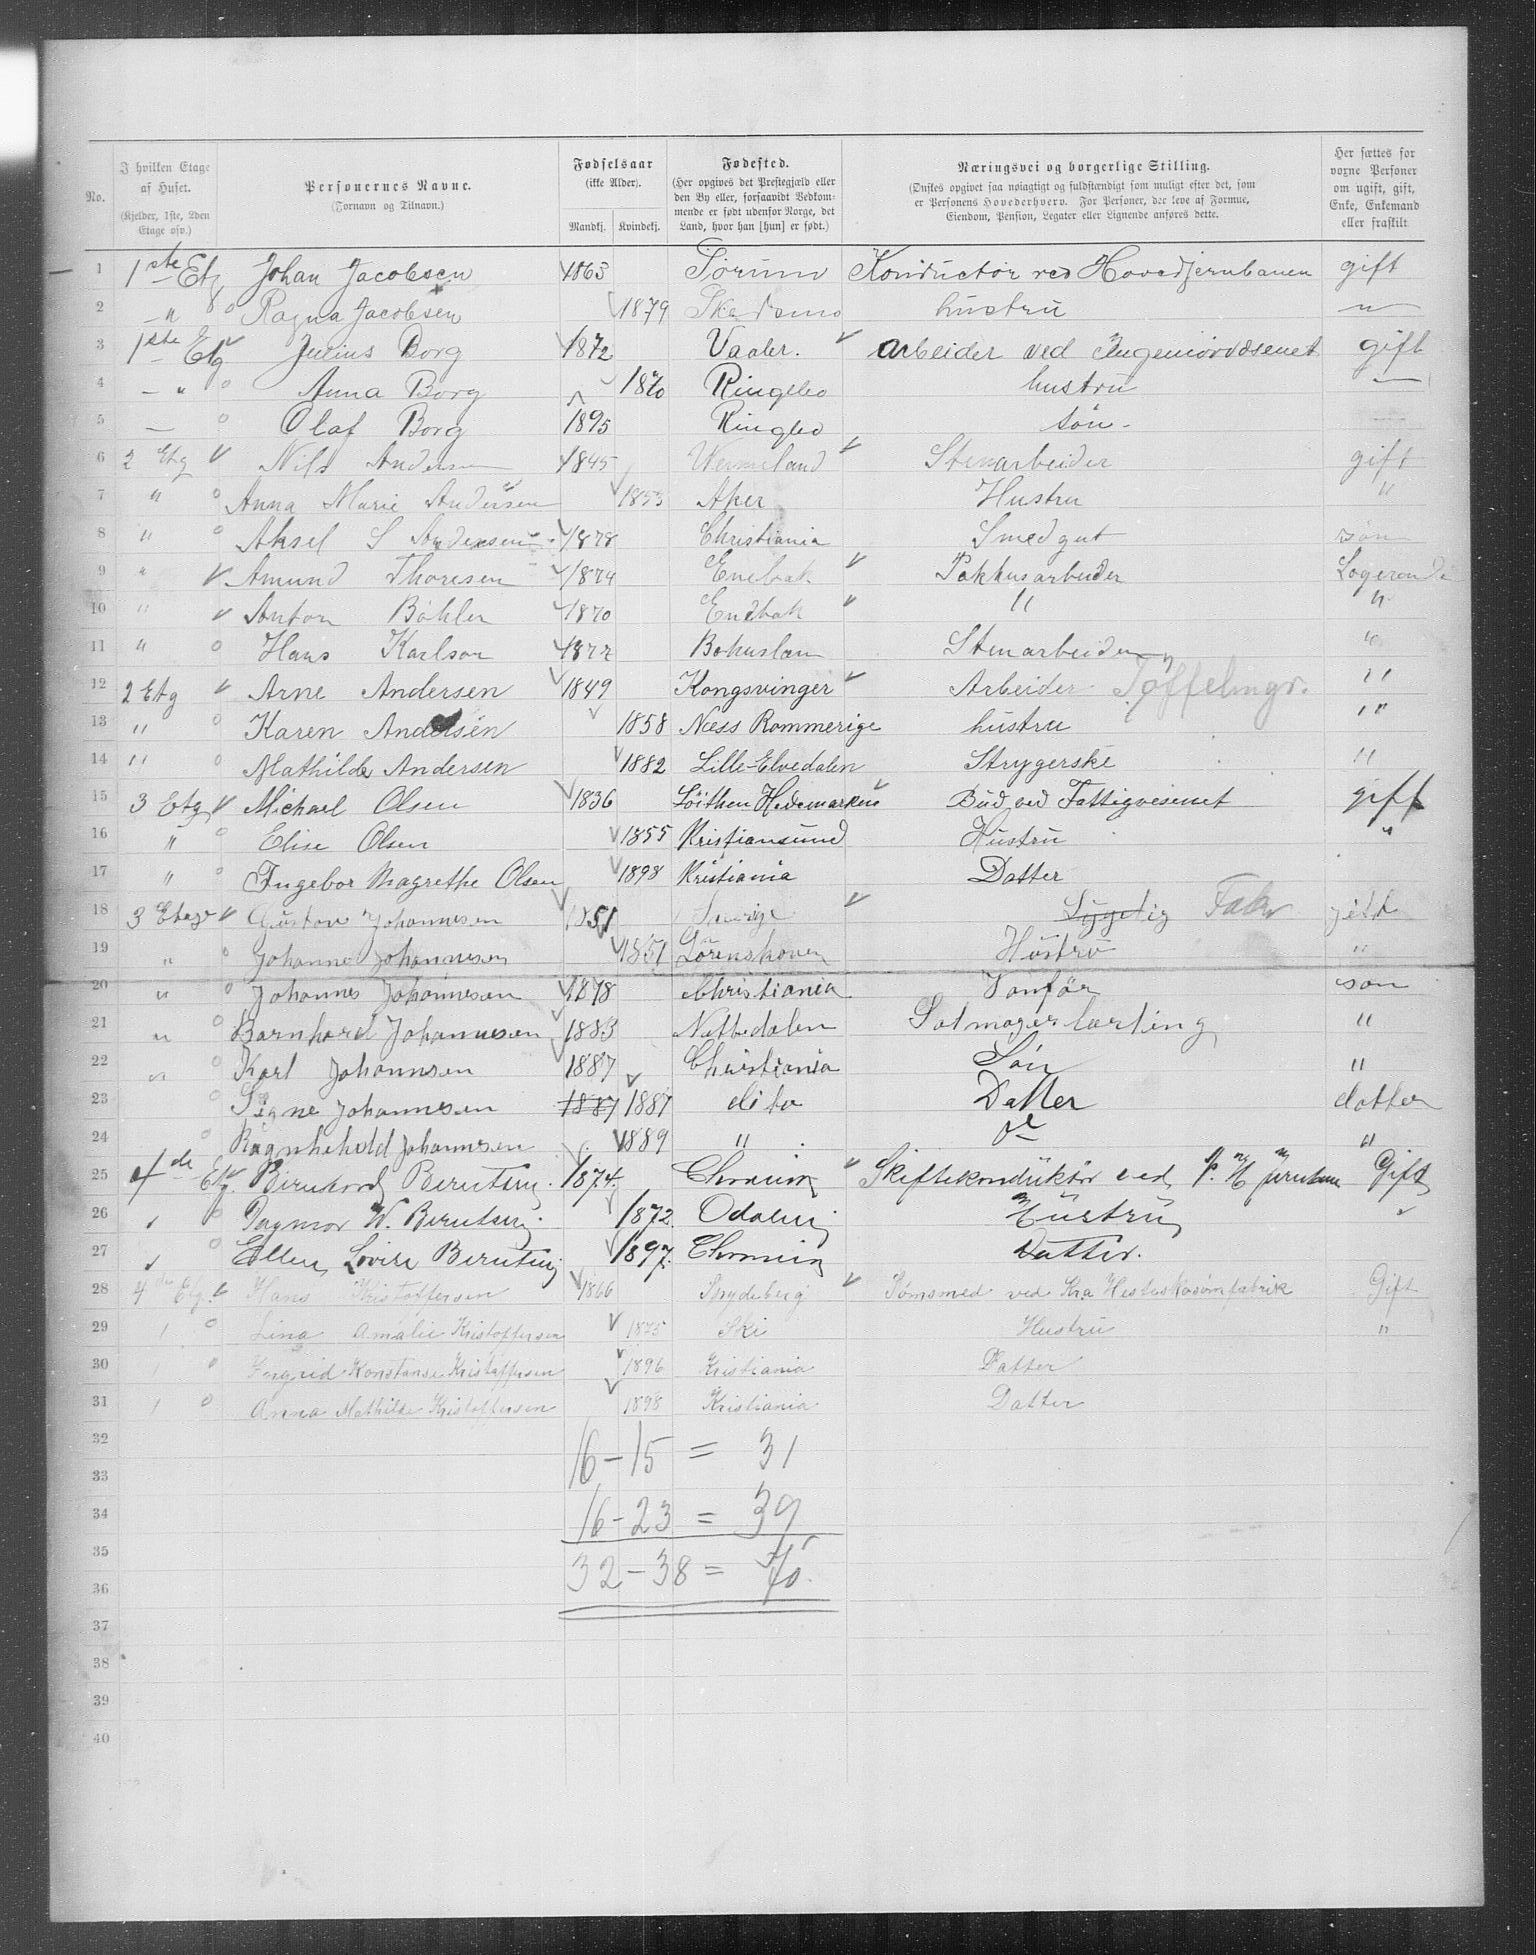 No. | I hvilken Etage af Huset. (Kjelder, 1ste, 2den Etage osv.) | Personernes Navne. (Fornavn og Tilnavn.) | Fødselsaar (ikke Alder). Mandkj. Kvindekj. | Fødested. (Her opgives det Prestegjæld eller den By eller, forsaavidt Vedkommende er født udenfor Norge, det Land, hvor han [hun] er født.) | Næringsvei og borgerlige Stilling. (Ønskes opgivet saa nøiagtigt og fuldstændigt som muligt efter det, som er Personens Hovederhverv. For Personer, der leve af Formue, Eiendom, Pension, Legater eller Lignende anføres dette.) | Her sættes for voxne Personer om ugift, gift, Enke, Enkemand eller fraskilt
1 1ste Etg Johan Jacobsen 1863 Sørum Konductør ved Hovedjernbanen gift
2 " Ragna Jacobsen 1879 Skedsmo hustru "
3 1ste Etg Julius Borg 1872 Vaaler. arbeider ved Ingeniørvæsenet gift
4 " Anna Borg 1870 Ringebo hustru —
5 — Olaf Borg 1895 Ringbo søn -
6 2 Etg Nils Andersen 1845 Wermeland Stenarbeider gift
7 " Anna Marie Andersen 1853 Aker Hustru "
8 " Aksel S Andersen 1878 Christiania Smedgut søn
9 " Amund Thoresen 1874 Enebak Pakhusarbeider Logerende
10 " Anton Bøhler 1870 Enebak " "
11 " Hans Karlson 1877 Bohuslæn Stenarbeider "
12 2 Etg Arne Andersen 1849 Kongsvinger Arbeider Tøffelmgr. "
13 " Karen Andersen 1858 Næss Rommerige hustru "
14 " Mathilde Andersen 1882 Lille-Elvedalen Strygerske "
15 3 Etg Michael Olsen 1836 Løithen Hedemarken Bud ved Fattigvesenet gift
16 " Elise Olsen 1855 Kristiansund Hustru "
17 " Ingebor Magrethe Olsen 1898 Kristiania Datter
18 3 Etage Gustav Johannesen 1851 Sverige Sygelig Fabr gift
19 " Johanne Johannesen 1851 Lørenskoven Hustru "
20 " Johannes Johannesen 1878 Christiania Vanfør søn
21 " Barnhard Johannesen 1883 Nittedalen Salmagerlærling "
22 " Karl Johannsen 1887 Christiania Søn "
23 Signe Johannesen 1887 1887 dito Datter datter
24 Ragnhehild Johannesen 1889 " do "
25 4de Etg. Bernhard Berntsen. 1874. Chrania Skiftekonduktør ved N. H Jernbane Gift
26 Dagmar W. Berntsen. 1872. Odalen Hustru
27 Ellen Lovise Berntsen 1897. Chrania Datter.
28 4de Etg. Hans Kristoffersen 1866 Spydeberg Sømsmed ved Kra Hesteskosømfabrik Gift
29 Lina Amalie Kristoffersen 1875 Ski Hustru "
30 Ingrid Konstanse Kristoffersen 1896 Kristiania Datter
31 Anna Mathilde Kristoffersen 1898 Kristiania Datter
32 16 – 15 = 31
33
34 16 – 23 = 39
35
36 32 – 38 = 70.
37
38
39
40